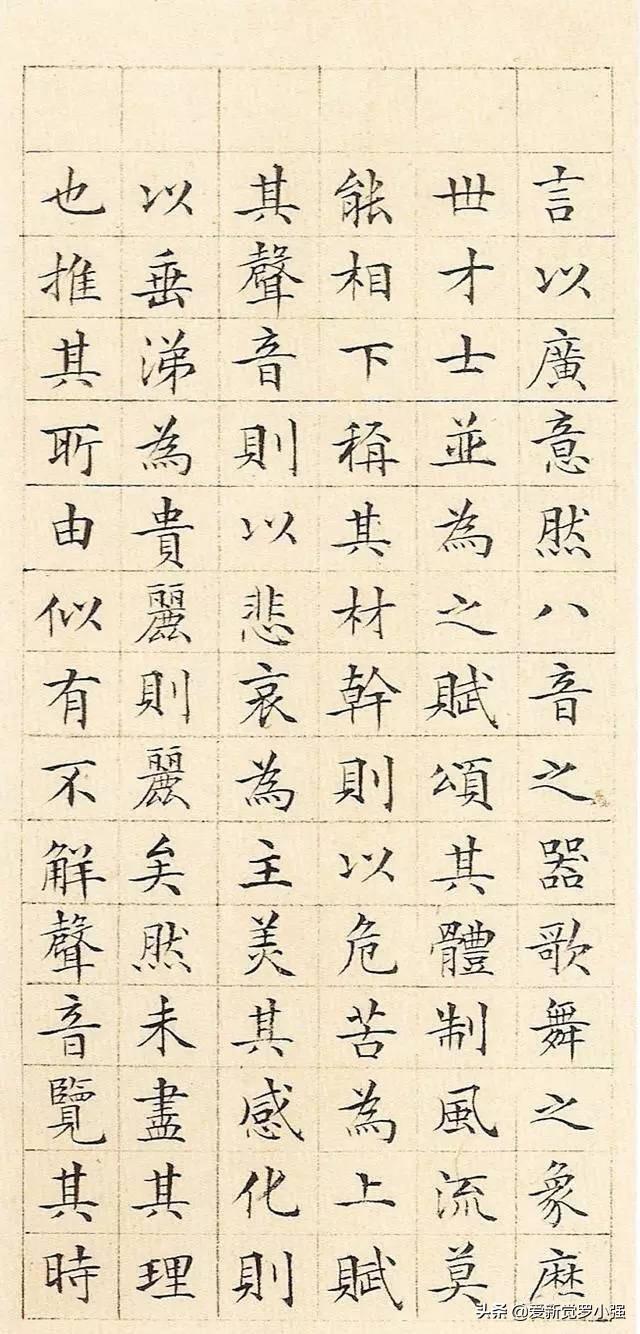 言以廣意然八音之器歌舞之象歷
世才士並為之賦頌其體制風流莫
能相下稱其材幹則以危苦為上賦
其聲音則以悲哀為主美其感化則
以垂涕為貴麗則麗矣然未盡其理
也推其所由似有不解聲音覽其時
头条 @爱新觉罗小强